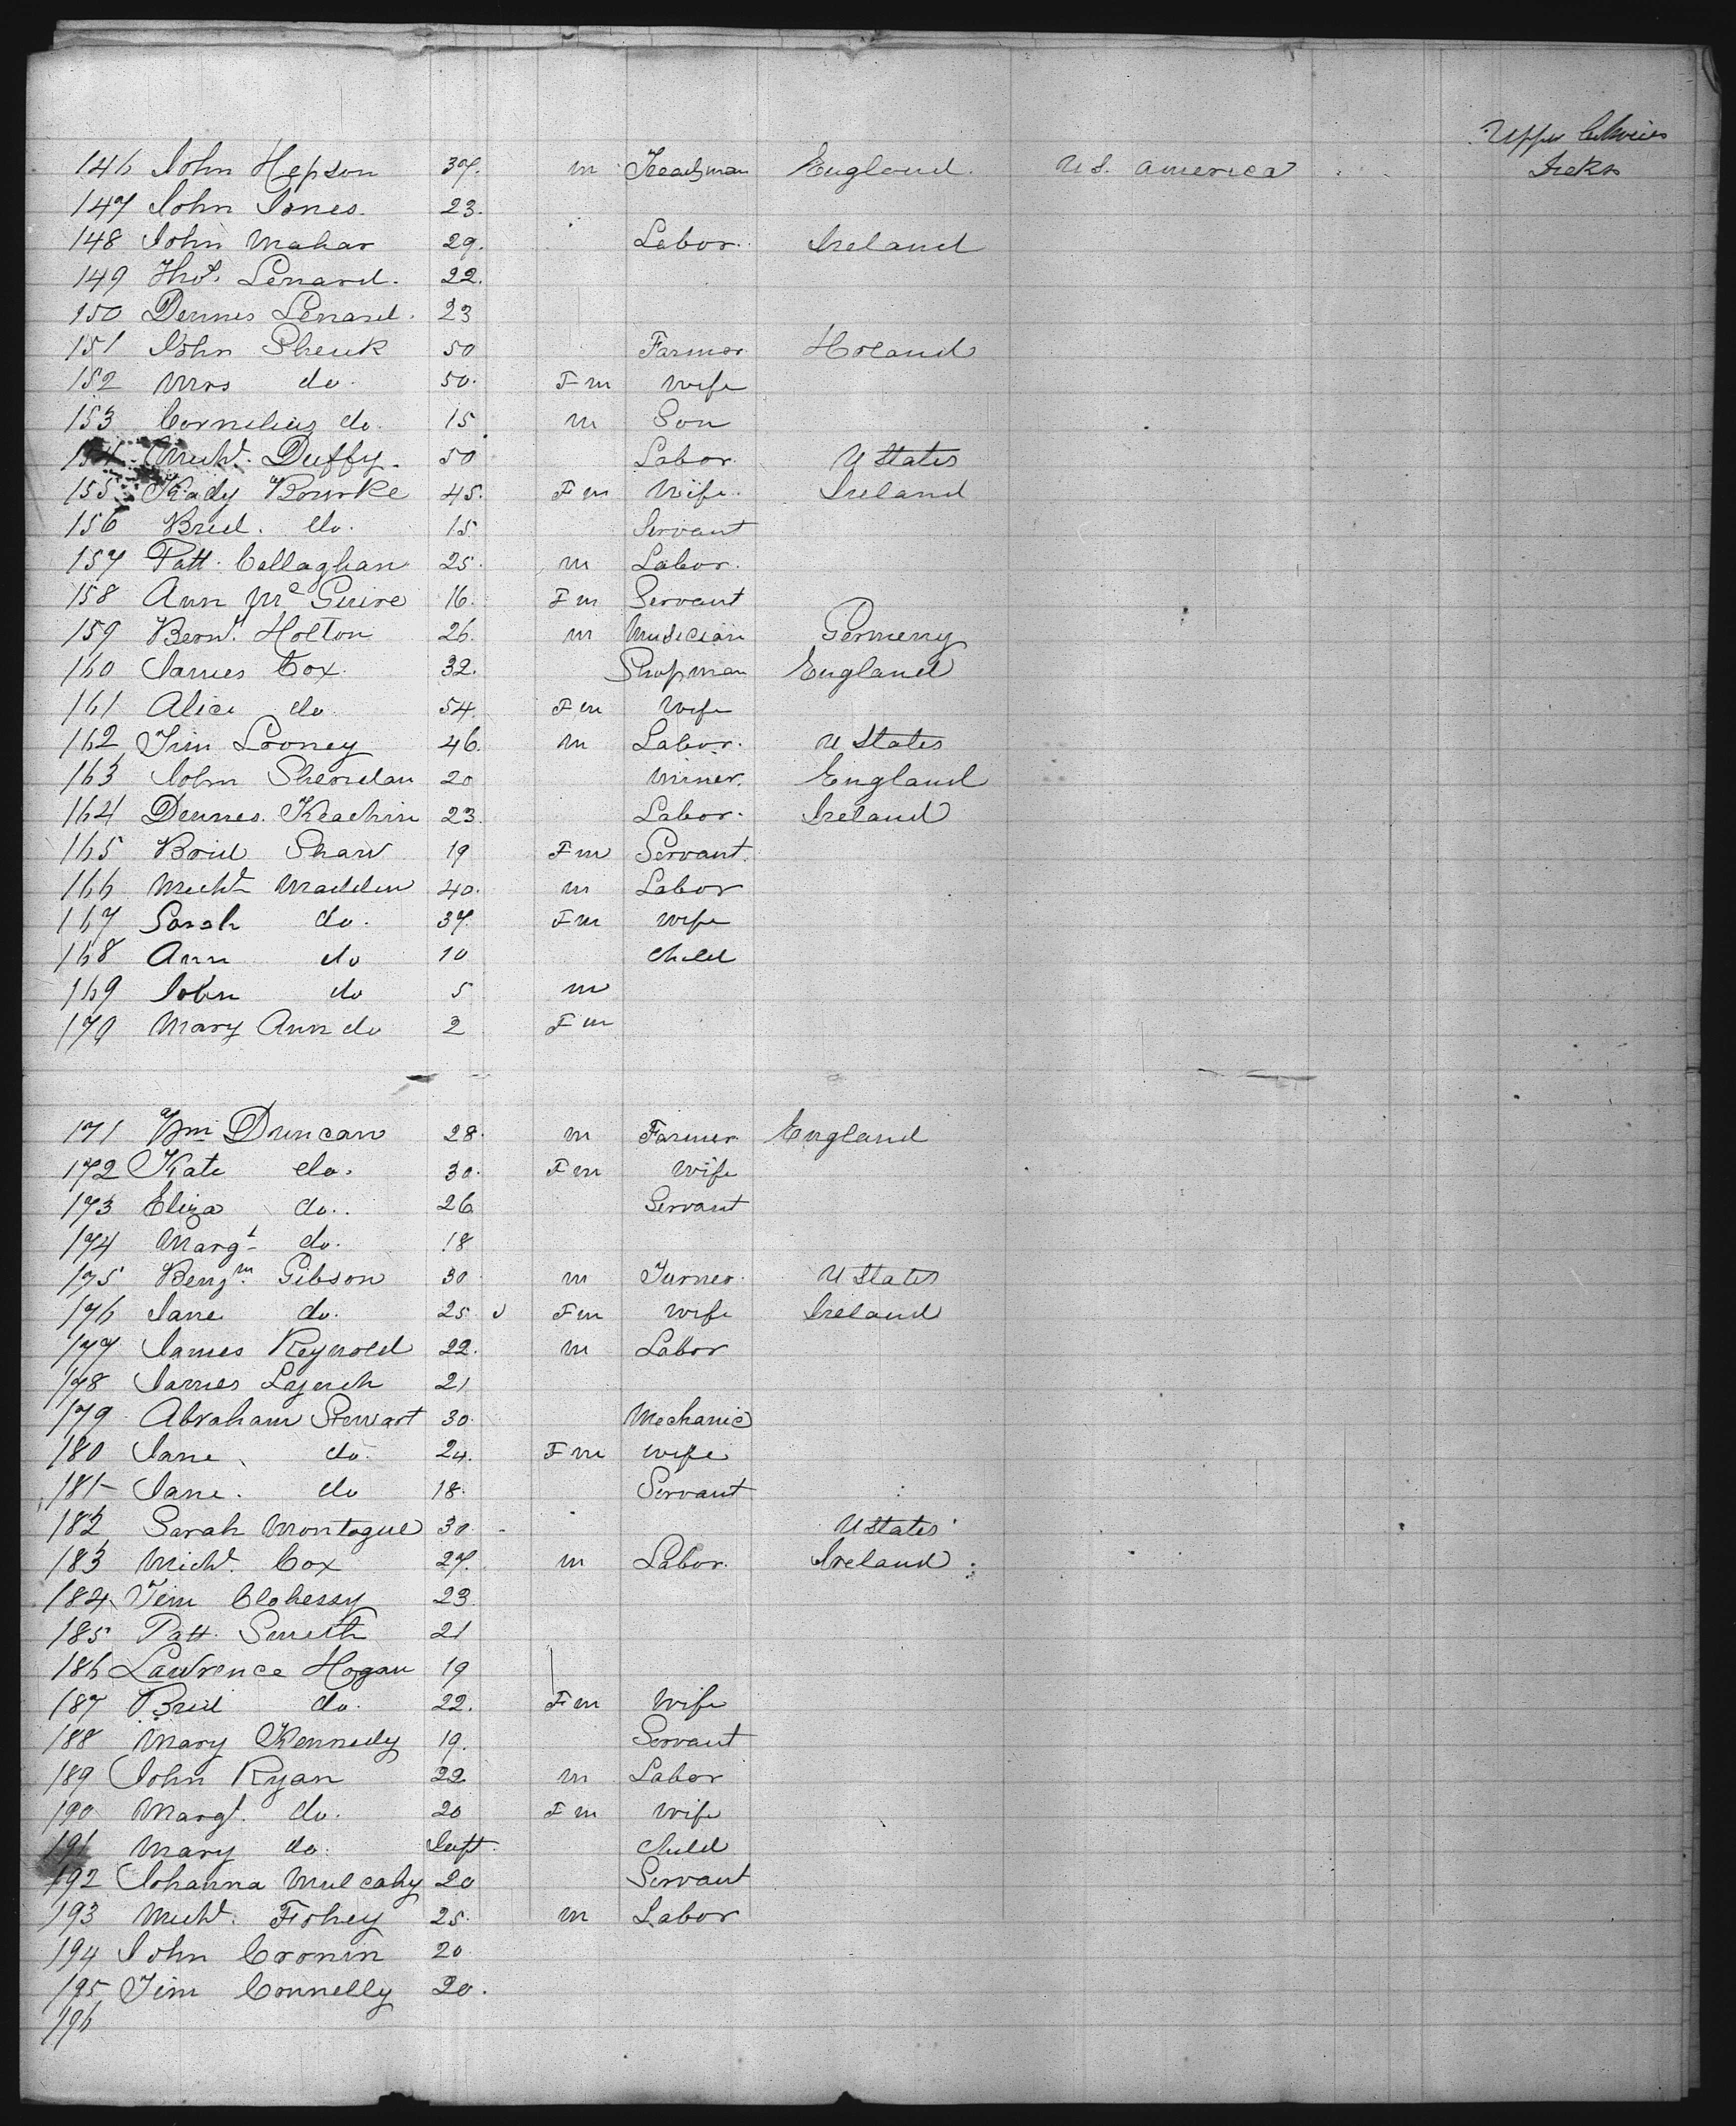 Upper
146 John Hepson 37. m England. U S. America Decks
147 John Jones. 23.
148 John Mahar 29. Labor. Ireland
149 Thos. Lenard. 22.
150 Dennes Lenard. 23
151 John Shenk 50 Farmer Holand
152 Mrs do. 50. Fm Wife
153 Cornelius do. 15 m Son
154 Michl. Duffy. 50 Labor. U States
155 Kady Bourke 45. Fm Wife. Ireland
156 Brid. do. 15. Servant
157 Patt. Callaghan 25. m Labor.
158 Ann McGuire 16. Fm Servant
159 Bernd. Holton 26. m Musician Germeny
160 James Cox. 32. Shopman England
161 Alice do 54. Fm Wife
162 Tim Looney 46. m Labor. U States
163 John Sheridan 20 Miner. England
164 Dennes. Keachin 23. Labor. Ireland
165 Brid Shaw 19 Fm Servant.
166 Michl Madden 40. m Labor
167 Sarah do. 37. Fm Wife
168 Ann do 10 Child
169 John do 5 m
170 Mary Ann do 2 Fm
171 Wm Duncan 28. m Farmer England
172 Kate do. 30. Fm Wife
173 Eliza do.. 26 Servant
174 Margt do. 18
175 Benjm. Gibson 30 m Turner. U States
176 Jane do. 25 Fm Wife Ireland
177 James Reynold 22. m Labor
178 James 21
179 Abraham Stewart 30. Mechanic
180 Jane do. 24. Fm Wife
181 Jane. do 18. Servant
182 Sarah Montague 30 U States
183 Michl. Cox 27. m Labor. Ireland
184 Tim Clohessy 23
185 Patt. Smith 21
186 Lawrence Hogan 19
187 Brid do. 22. Fm Wife
188 Mary Kennedy 19. Servant
189 John Ryan 22 m Labor
190 Margt. do. 20 Fm Wife
191 Mary do. Inft. Child
192 Johanna Mulcahy 20 Servant
193 Michl. Fohey 25. m Labor
194 John Cronin 20
195 Tim Connelly 20.
196